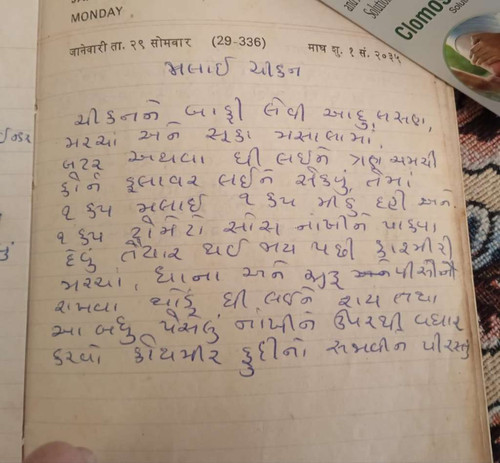 MONDAY
જાનેવારી તા. ૨૯ સોમવાર (29-336) માઘ શુ. ૧ સં. ૨૦૩૫
Clomog
Solu
મલાઈ ચીકન
ચીકનને બાફી લેવી આદુ, લસણ,
મરચાં અને સૂકા મસાલામાં,
બટર અથવા ઘી લઈને ત્રણ ચમચી
કોર્ન ફ્લાવર લઈને શેકવું, તેમાં
૧ કપ મલાઈ ૧ કપ મીઠું દહીં અને
૧ કપ ટોમેટો સોસ નાંખીને પાકવા
દેવું તૈયાર થઈ જાય પછી કાશ્મીરી
મરચાં, ધાના અને જીરૂ
થોડું ઘી લઈને રાય તથા
આ બધુ પીસેલું નાંખીને ઉપરથી વઘાર
કરવો કોથમીર ફુદીનો સજાવીને પીરસવું